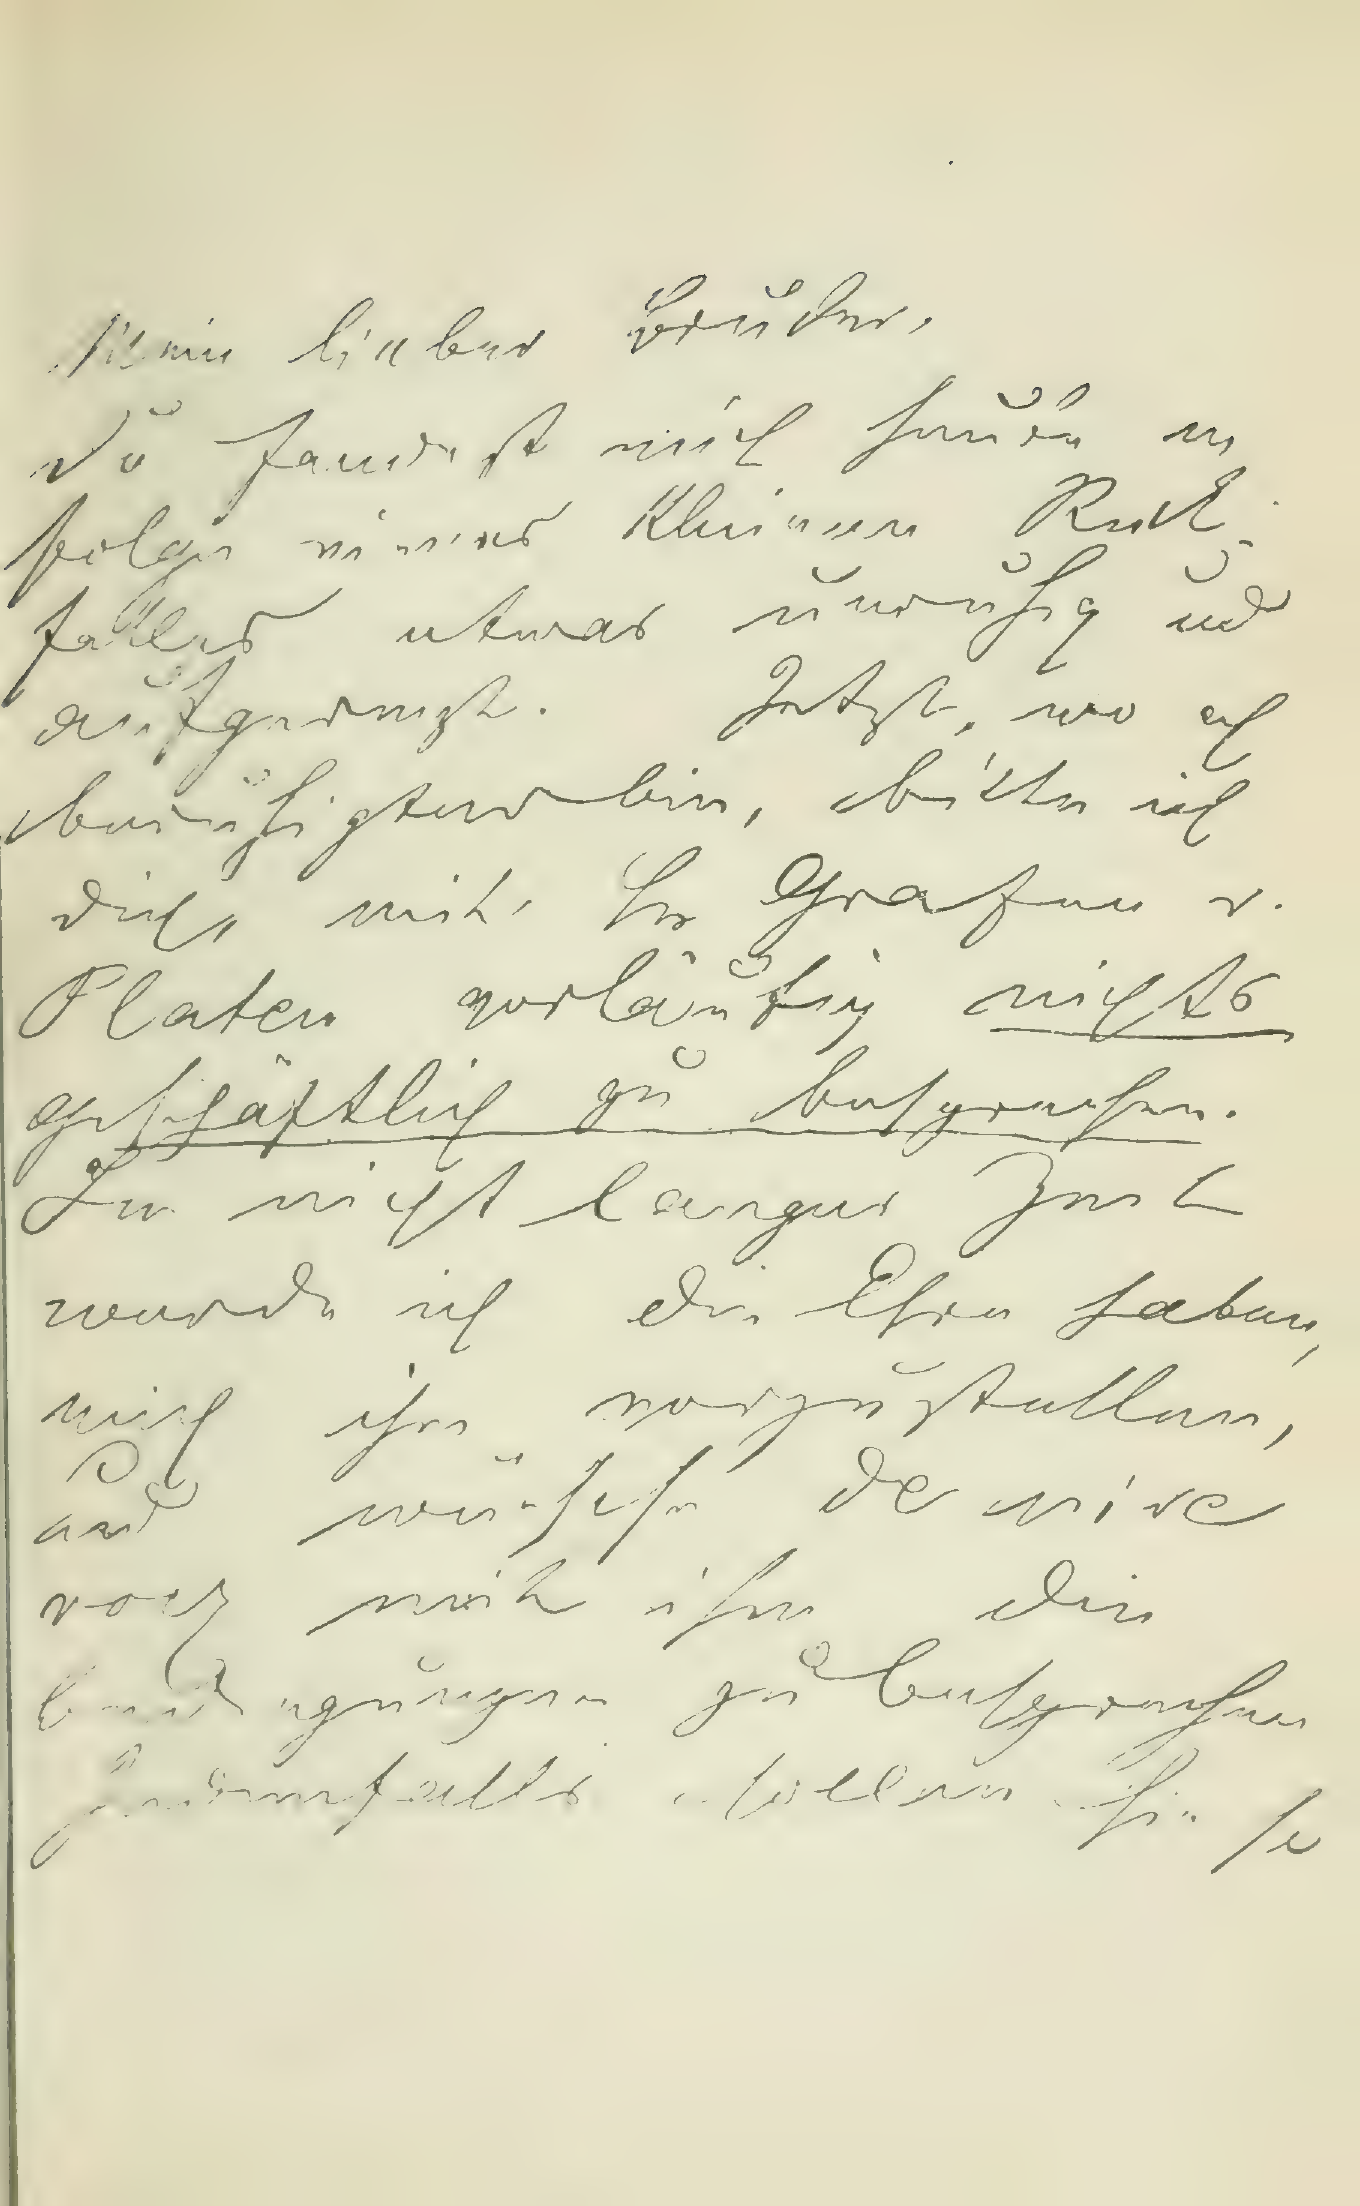 Mein lieber Bruder,
Du fandest mich heute in
folge eines kleinen Rück-
falles etwas unruhig und
aufgereizt. Jetzt, wo ich
beruhigter bin, bitte ich
dich, mit Hr Grafen v.
Platen vorläufig nichts
geschäftlich zu besprechen.
In nicht langer Zeit
werde ich die Ehre haben,
mich ihm vorzustellen,
und wünsche
noch mit ihm die
bedingungen zu besprechen
jedenfalls sollen Sie se